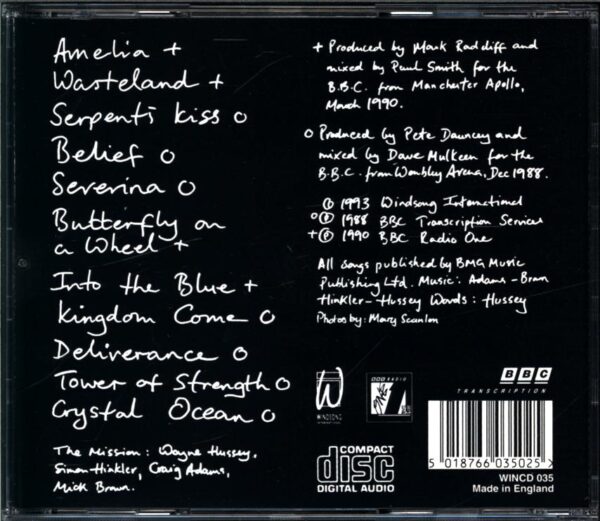 Amelia +
Wasteland +
Serpents Kiss o
Belief o
Severina o
Butterfly on
a Wheel +
Into the Blue +
Kingdom Come o
Deliverance o
Tower of Strength o
Crystal Ocean o
The Mission: Wayne Hussey,
Simon Hinkler, Craig Adams,
Mick Brown.
+ Produced by Mark Radcliff and
mixed by Paul Smith for the
B.B.C. from Manchester Apollo,
March 1990.
o Produced by Pete Dauncey and
mixed by Dave Mulkeen for the
B.B.C. from Wembley Arena, Dec 1988.
℗ 1993 Windsong International
o ℗ 1988 BBC Transcription Services
+ ℗ 1990 BBC Radio One
All Songs published by BMG Music
Publishing Ltd. Music: Adams - Brown
Hinkler - Hussey Words: Hussey
Photos by: Mary Scanlon
W
WINDSONG
INTERNATIONAL
BBC RADIO
ONE
BBC
TRANSCRIPTION
COMPACT
disc
DIGITAL AUDIO
5 018766 035025 >
WINCD 035
Made in England